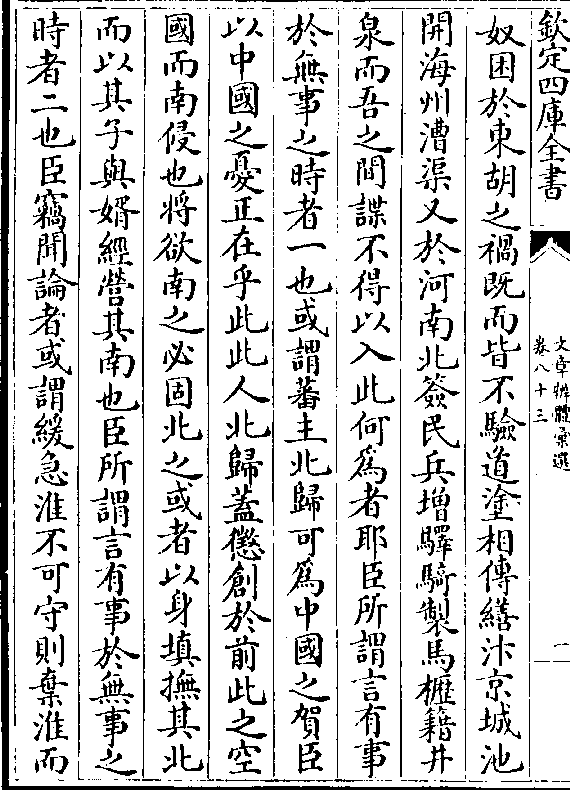 欽定四庫全書
文章辨體彙選
卷八十三
一
奴困於東胡之禍既而皆不驗道塗相傳繕汴京城池
開海州漕渠又於河南北簽民兵增驛騎製馬櫪籍井
泉而吾之間諜不得以入此何為者耶臣所謂言有事
於無事之時者一也或謂蕃主北歸可為中國之賀臣
以中國之憂正在乎此此人北歸蓋懲創於前此之空
國而南侵也將欲南之必固北之或者以身填撫其北
而以其子與婿經營其南也臣所謂言有事於無事之
時者二也臣竊聞論者或謂緩急淮不可守則棄淮而